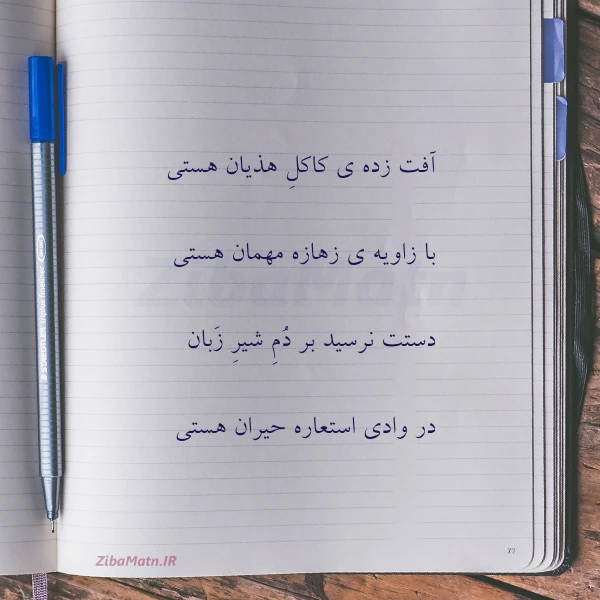 آفت زده ی کاکلِ هذیان هستی
با زاویه ی زهازه مهمان هستی
دستت نرسید بر دُمِ شیرِ زَبان
در وادی استعاره حیران هستی
ZibaMatn.IR
77